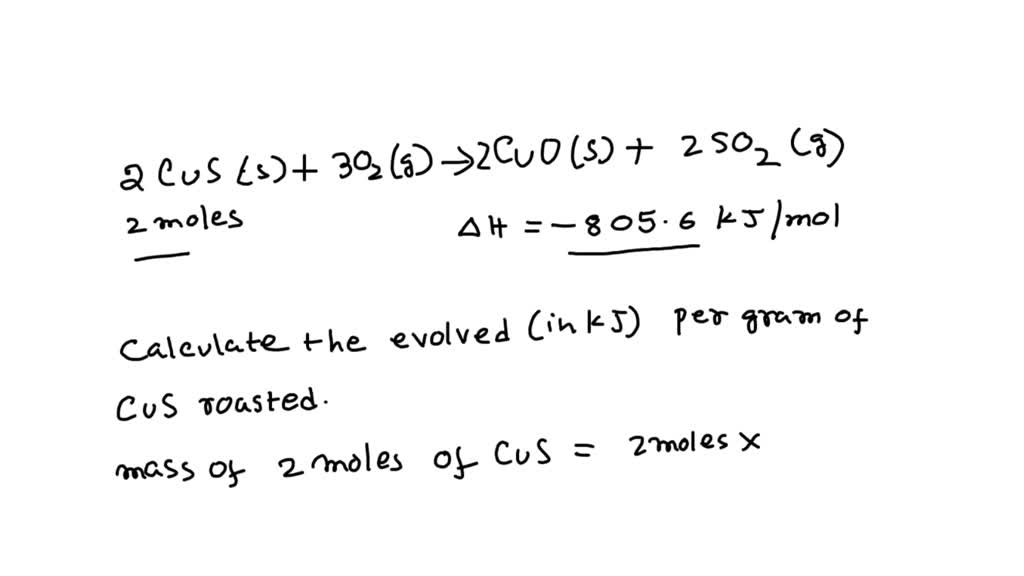 2 CuS (s) + 3O₂ (g) → 2CuO (s) + 2 SO₂ (g)
2 moles ΔH = - 805.6 kJ/mol
Calculate the evolved (in kJ) per gram of
CuS roasted.
mass of 2 moles of CuS = 2 moles ×